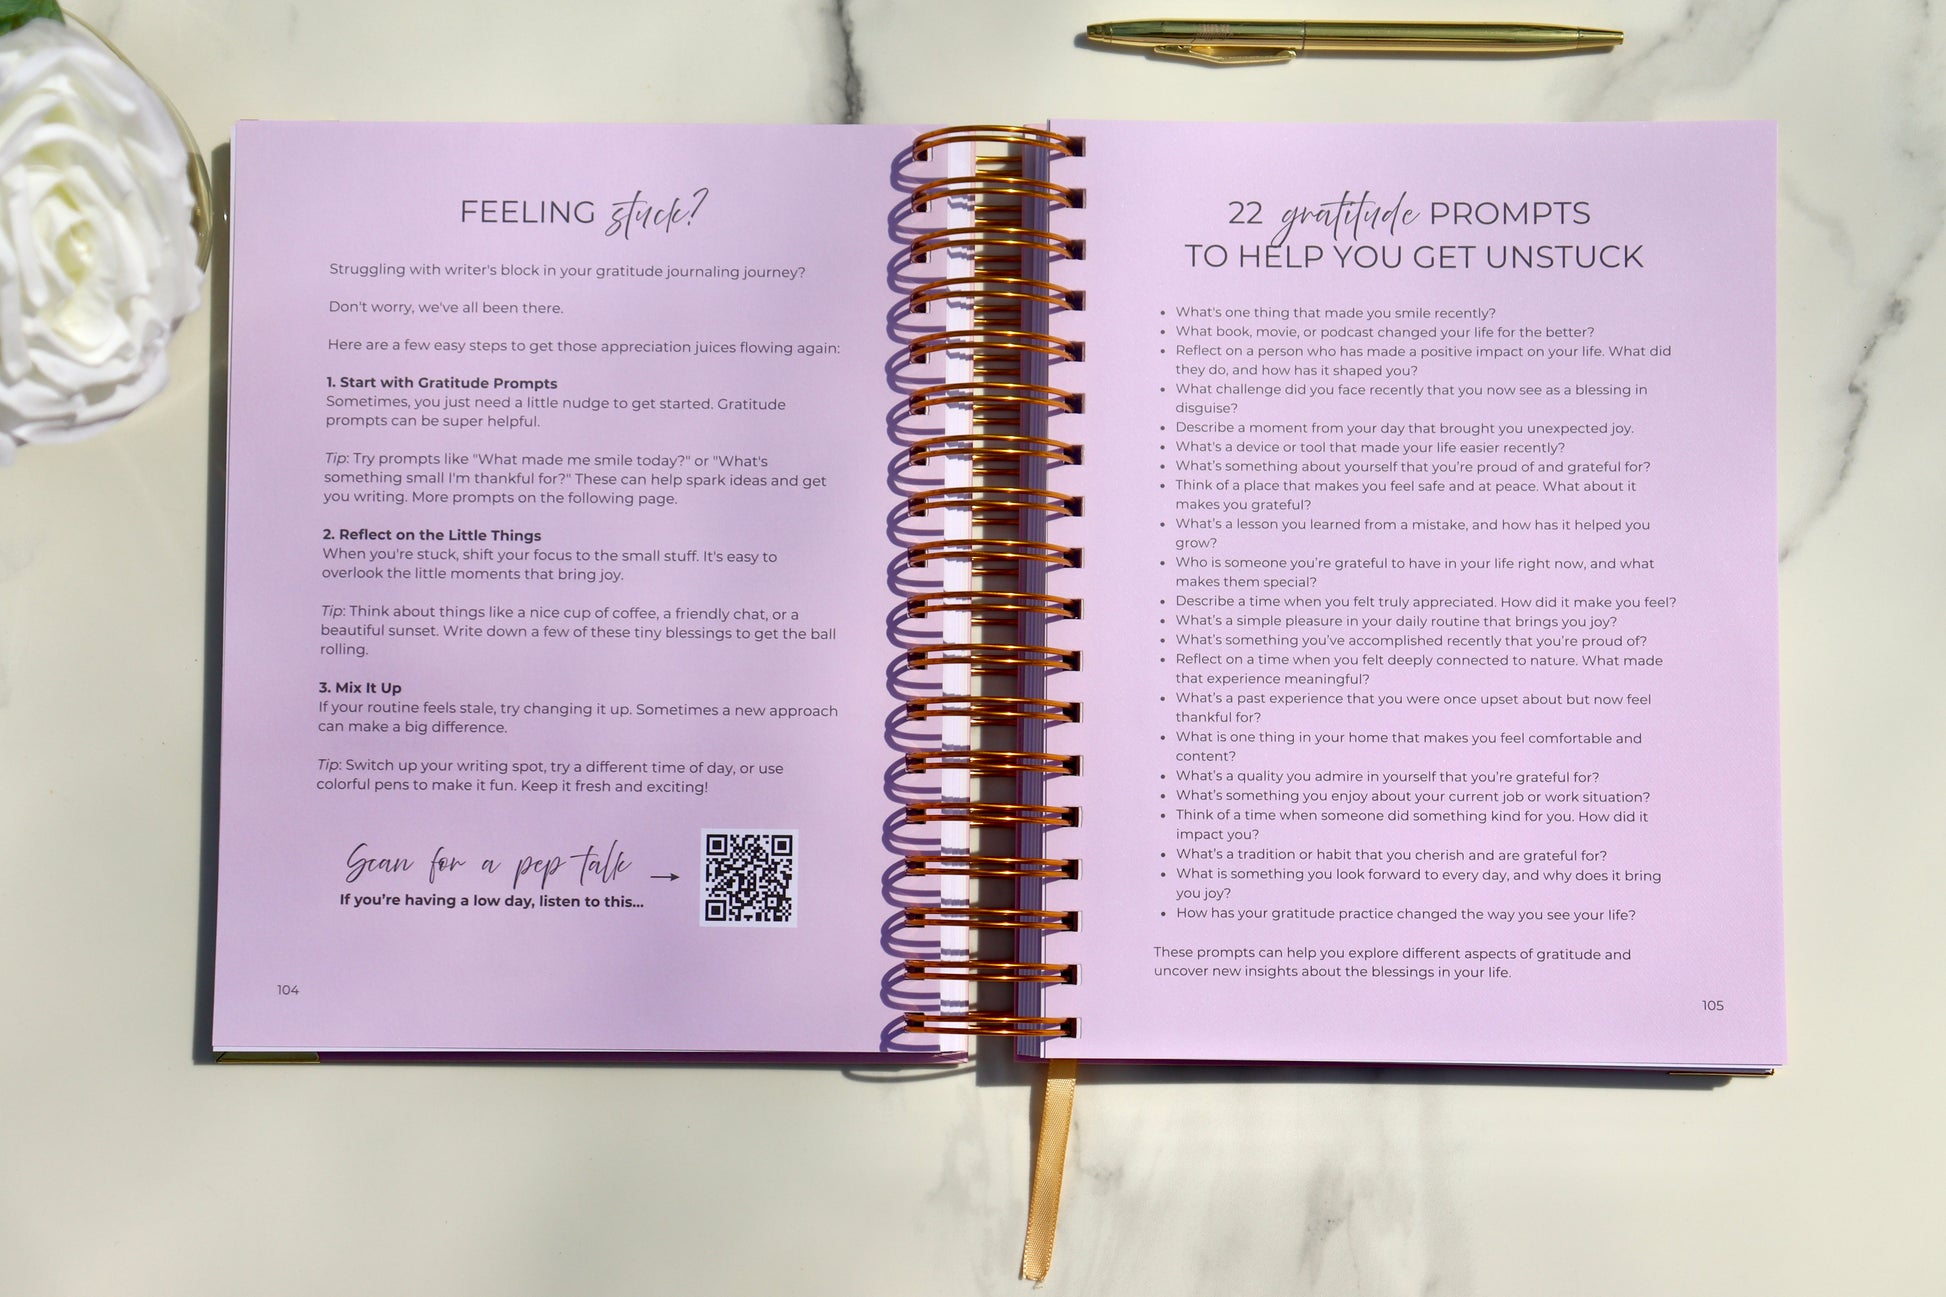 FEELING stuck?
Struggling with writer's block in your gratitude journaling journey?
Don't worry, we've all been there.
Here are a few easy steps to get those appreciation juices flowing again:
1. Start with Gratitude Prompts
Sometimes, you just need a little nudge to get started. Gratitude
prompts can be super helpful.
Tip: Try prompts like "What made me smile today?" or "What's
something small I'm thankful for?" These can help spark ideas and get
you writing. More prompts on the following page.
2. Reflect on the Little Things
When you're stuck, shift your focus to the small stuff. It's easy to
overlook the little moments that bring joy.
Tip: Think about things like a nice cup of coffee, a friendly chat, or a
beautiful sunset. Write down a few of these tiny blessings to get the ball
rolling.
3. Mix It Up
If your routine feels stale, try changing it up. Sometimes a new approach
can make a big difference.
Tip: Switch up your writing spot, try a different time of day, or use
colorful pens to make it fun. Keep it fresh and exciting!
Scan for a pep talk
If you're having a low day, listen to this...
104
22 gratitude PROMPTS
TO HELP YOU GET UNSTUCK
• What's one thing that made you smile recently?
• What book, movie, or podcast changed your life for the better?
• Reflect on a person who has made a positive impact on your life. What did
they do, and how has it shaped you?
• What challenge did you face recently that you now see as a blessing in
disguise?
• Describe a moment from your day that brought you unexpected joy.
• What's a device or tool that made your life easier recently?
• What's something about yourself that you're proud of and grateful for?
• Think of a place that makes you feel safe and at peace. What about it
makes you grateful?
• What's a lesson you learned from a mistake, and how has it helped you
grow?
• Who is someone you're grateful to have in your life right now, and what
makes them special?
• Describe a time when you felt truly appreciated. How did it make you feel?
• What's a simple pleasure in your daily routine that brings you joy?
• What's something you've accomplished recently that you're proud of?
• Reflect on a time when you felt deeply connected to nature. What made
that experience meaningful?
• What's a past experience that you were once upset about but now feel
thankful for?
• What is one thing in your home that makes you feel comfortable and
content?
• What's a quality you admire in yourself that you're grateful for?
• What's something you enjoy about your current job or work situation?
• Think of a time when someone did something kind for you. How did it
impact you?
• What's a tradition or habit that you cherish and are grateful for?
• What is something you look forward to every day, and why does it bring
you joy?
• How has your gratitude practice changed the way you see your life?
These prompts can help you explore different aspects of gratitude and
uncover new insights about the blessings in your life.
105